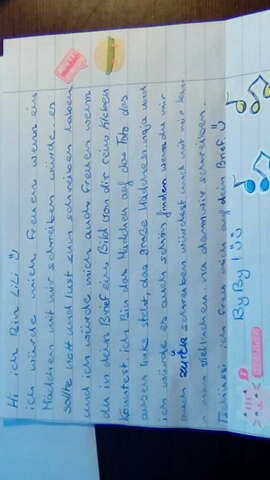 Hi ich Bin Lili ü
ich würde mich freuen wenn ein
Mädchen mit mir schreiben würde. es
sollte nett und lust zum schreiben haben
und ich würde mich auch Freuen wenn
du in dein Brief ein Bild von dir rein
Könntest ich Bin das Mädchen auf das Foto das
ausen links steht, das große Mädchen naja und
ich würde es auch schön finden wenn du mir
auch zurück schreiben würdest und mit mir
schreiben.
ich freu mich auf dein Brief ü
By By! ü ü